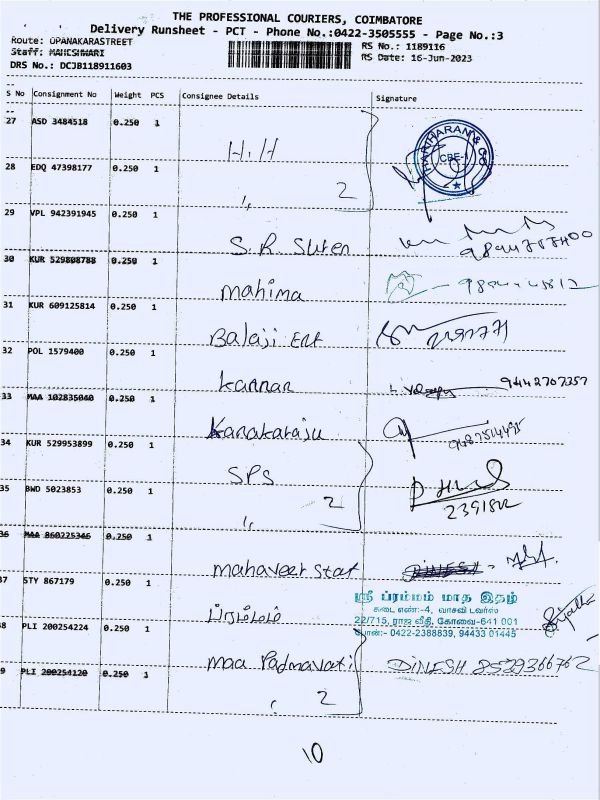 THE PROFESSIONAL COURIERS, COIMBATORE
Delivery Runsheet - PCT - Phone No.:0422-3505555 - Page No.:3
Route: OPANAKARASTREET
RS No.: 1189116
Staff: MAHESHWARI
RS Date: 16-Jun-2023
DRS No.: DCJB118911603
S No Consignment No Weight PCS Consignee Details Signature
27 ASD 3484518 0.250 1 H.H
HARIHARAN & CO
CBE-1
28 EDQ 47398177 0.250 1 ,, 2
29 VPL 942391945 0.250 1 S.R Suten
30 KUR 529808788 0.250 1 mahima
31 KUR 609125814 0.250 1 Balaji Ent
32 POL 1579400 0.250 1 kannan 9442707357
33 MAA 102835040 0.250 1 kanakaraju 9487514495
34 KUR 529953899 0.250 1 SPS
35 BWD 5023853 0.250 1 ,, 2 2391802
36 MAA 860225346 0.250 1 mahaveer star DINESH
37 STY 867179 0.250 1 ப்ரம்மம்
ஸ்ரீ ப்ரம்மம் மாத இதழ்
கடை எண்:-4, வாசவி டவர்ஸ்
22/715, ராஜ வீதி, கோவை-641 001
போன்:- 0422-2388839, 94433 01445
8 PLI 200254224 0.250 1 maa Padmavati DINESH 8529366762
9 PLI 200254120 0.250 1 2
10